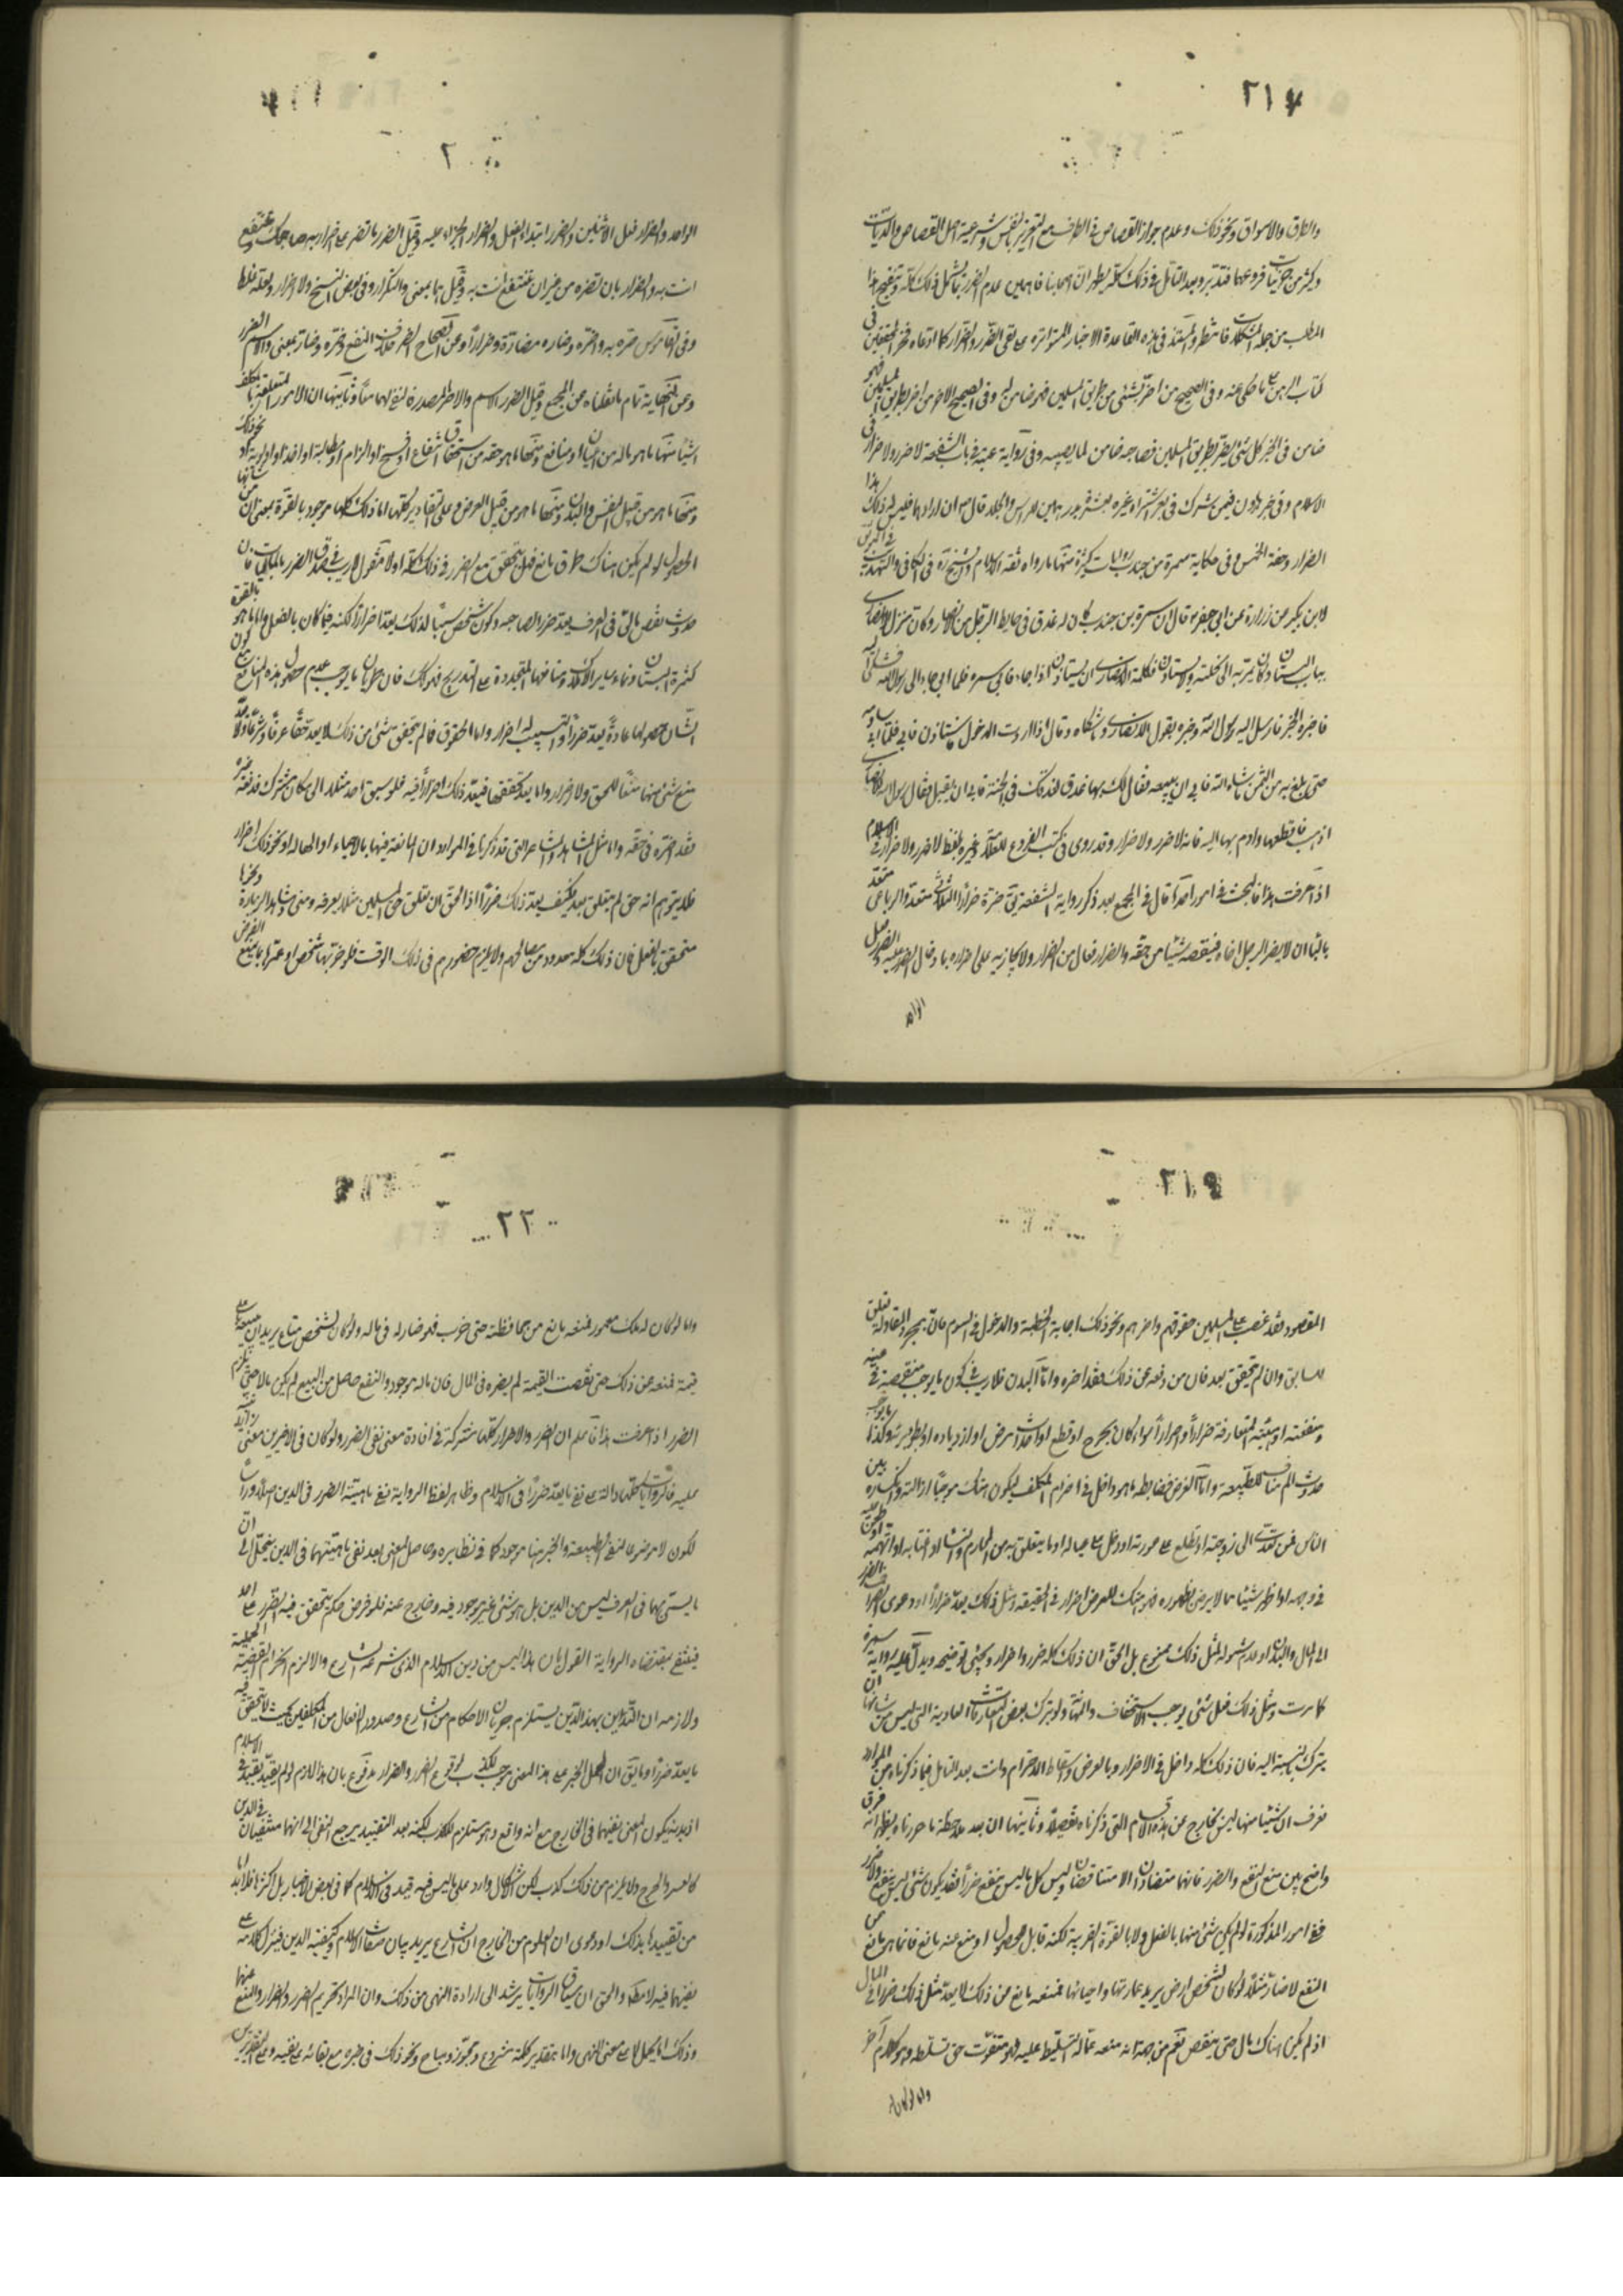 ٢١٧
والطرق والاسواق ونحو ذلك وعدم جواز القصاص في الطرف مع التغرير بالنفس وشرعية اصل القصاص والديات
وكثير من جزئيات فروعها فتدبر وبعد التأمل في ذلك كله يظهر ان اصحابنا فاهمين عدم الضرر بما يشمل ذلك كله وتنقيح هذا
المطلب من جملة المشكلات فانتظر والمستند في هذه القاعدة الاخبار المتواترة على نفي الضرر والضرار كما ادعاه فخر المحققين في
كتاب الرهن على ما حكي عنه وفي الصحيح من اضر بشئ من طريق المسلمين فهو ضامن له وفي الصحيح الاخر من اضر بطريق المسلمين فهو
ضامن وفي الخبر كل شئ يضر بطريق المسلمين فصاحبه ضامن لما يصيبه وفي رواية عقبة في باب الشفعة لا ضرر ولا ضرار في
الاسلام وفي خبر هارون فيمن شرك في بعير اشتراه غيره بعشرة بدرهمين بالراس والجلد قال ان اراد فليس له ذلك هذا
الضرار وحقه الخمس وفي حكاية سمرة بن جندب روايات كثيرة منها ما رواه ثقة الاسلام والشيخ ره في الكافي والتهذيب في الموثق
لابن بكير عن زرارة عن ابي جعفر ع قال ان سمرة بن جندب كان له عذق في حايط لرجل من الانصار وكان منزل الانصاري
بباب البستان وكان يمر به الى نخلته ولا يستأذن فكلمه الانصاري ان يستأذن اذا جاء فابى سمرة فلما ابى جاء الى رسول الله فشكى اليه
فاخبره الخبر فارسل اليه رسول الله وخبره بقول الانصاري وشكاه وقال اذا اردت الدخول فاستأذن فابى فلما ابى ساومه
حتى بلغ به من الثمن ما شاء الله فابى ان يبيعه فقال لك بها عذق في الجنة فابى ان يقبل فقال رسول الله للانصاري
اذهب فاقلعها وارم بها اليه فانه لا ضرر ولا ضرار وقد روى في كتب الفروع للعلامة وغيره بلفظ لا ضرر ولا ضرار في الاسلام
اذا عرفت هذا فالبحث في امور احدها قال في المجمع بعد ذكر رواية الشفعة يق ضره ضرارا الثلاثي متعد والرباعي متعد
بالباء ان لا يضر الرجل اخاه فينقصه شيئا من حقه والضرار فعال من الضرار ولا يجازيه على اضراره بادخال الضرر عليه والضرر فعل
الواحد
٢
الواحد والضرار فعل الاثنين والضرر ابتداء الفعل والضرار الجزاء عليه وقيل الضرر ما تضر به صاحبك وتنتفع
انت به والضرار بان تضره من غير ان تنتفع انت به وقيل هما بمعنى والتكرار وفي بعض النسخ ولا اضرار ولعله غلط
وفي القاموس ضره به واضره وضاره مضارة وضرارا وعن الصحاح الضر خلاف النفع وضره وضاره بمعنى والاسم الضرر
وعن النهاية تمام ما نقلناه عن المجمع وقيل الضرر الاسم والاضرار المصدر فنفاهما معا وثانيها ان الامور المتعلقة بالمكلف
اشياء منها ما هو ماله من اعيان او منافع ومنها ما هو حقه من استحقاق انتفاع او فسخ او الزام او مطالبة او اخذ او اولوية او نحو ذلك
ومنها ما هو من قبيل النفس والبدن ومنها ما هو من قبيل العرض وعلى التقادير كلها اما ذلك كلها موجود بالقوة بمعنى ان من شأنها
الحصول لو لم يكن هناك طرق مانع فهل يتحقق مع الضرر في ذلك كله او لا فنقول لا ريب في صدق الضرر بالمالي فان
حدوث نقص مالي في العرف يعد ضررا لصاحبه وكون شخص سببا لذلك يعد اضرارا لكنه فيما كان بالفعل واما ما هو بالقوة
كثمرة البستان ونماء ساير الاملاك ومنافعها المتجددة على التدريج فهو كك فان طريان ما يوجب عدم حصول هذه المنافع مع كون
الشأن حصولها عادة يعد ضررا والتسبيب له اضرار واما الحقوق فما لم يتحقق شئ من ذلك لا يعد حقا عرفا وشرعا ولا يعد
منع شئ منها منعا للحق ولا اضرار واما بعد تحققها فيعد ذلك اضرارا فيه فلو سبق احد مثلا الى مكان مشترك فدفعه غيره
فقد اضره في حقه واما مثل المشاهد والمشاعر التي قد ذكرنا في المراد ان المانعة فيها بالاحياء او الحالة او نحو ذلك اضرار
فلا يتوهم انه حق لم يتعلق بعد فكيف يعد ذلك ضررا اذ الحق ان تعلق حق المسلمين مثلا بعرفة ومنى ومشاهد الزيارة ونحوها
متحقق بالفعل فان ذلك كله معدود من مصالحهم ولا يلزم حضورهم في ذلك الوقت فلو خربها شخص او عمرها بما يمنع الغرض
٢١٩
المقصود فقد غصب على المسلمين حقوقهم واضرهم ونحو ذلك اجابة الخطبة والدخول في السوم فان بمجرد المقاولة تعلق
للسابق وان لم يتحقق بعد فان من دفعه عن ذلك فقد اضره واما البدن فلا ريب في كون ما يوجب منقصة في عينه
ومنفعته او هيئته المتعارفة ضرارا واضرارا سواء كان بجرح او قطع او احداث مرض او ازدياده او بطوء برئه وكذا ما يوجب
حدوث الم مناف للطبيعة واما العرض فضابطه ما هو داخل في احترام المكلف ليكون هتك موجبا لزالته وانكساره بين
الناس فمن تعدى الى زوجته او تطلع على عورته او دخل على عياله او ما يتعلق به من المحارم والنساء او اغتابه او اتهمه او طعن عليه
في وجهه او اظهر شيئا مما لا يرضى بظهوره فهو هتك للعرض اضرار في الحقيقة ومثل ذلك يعد ضرارا ودعوى انصراف الضرر
الى المال والبدن او عدم شموله لمثل ذلك ممنوع بل الحق ان ذلك كله ضرر واضرار ويجئ توضيحه ويدل عليه رواية سمرة
كما مرت ومثل ذلك فعل شئ يوجب الاستخفاف والتهاون او ترك بعض التعارفات العادية التي ليس من شأنها ان
يترك بالنسبة اليه فان ذلك كله داخل في الاضرار وبالعرض واسقاط الاحترام وانت بعد التأمل فيما ذكرناه من الموارد
تعرف ان شيئا منها ليس بخارج عن هذه الاقسام التي ذكرناه تفصيلا وثالثها ان بعد ملاحظة ما حررناه يظهر انه فرق
واضح بين منع النفع والضرر فانهما متضادان لا متناقضان وليس كل ما ليس بنفع ضررا فقد يكون شئ ليس بنفع ولا ضرر
ففي امور المذكورة لو لم يكن شئ منها بالفعل ولا بالقوة القريبة لكنه قابل لحصولها ومنع عنه مانع فانما هو مانع عن
النفع لا ضار مثلا لو كان لشخص ارض يريد عمارتها واحيائها فمنعه مانع عن ذلك لا يعد مثل ذلك ضررا في المال
اذ لم يكن هناك مال حتى ينقص نعم من جهة انه منعه عما له التسليط عليه فهو مفوت حق تسلطه وهو كلام آخر
واما لو كان له
٢٢
واما لو كان له ملك معمور فمنعه مانع من محافظته حتى خرب فهو ضار له في ماله ولو كان لشخص متاع يريد ان يبيعه على
قيمة فمنعه عن ذلك حتى نقصت القيمة لم يضره في المال فان ماله موجود والنفع حاصل من البيع لم يكن مالا حتى يلزم
الضرر اذا عرفت هذا فاعلم ان الضرر والاضرار كلها مشتركة في افادة معنى نفي الضرر ولو كان في الاخيرين معنى زائد
عليه فالروايات كلها دالة على نفي ما يعد ضررا في الاسلام وظاهر لفظ الرواية نفي ماهية الضرر في الدين اصلا ورأسا
لكون لا موضوعا لنفي الطبيعة والخبر فيها موجود كما في نظايره وحاصل المعنى بعد نفي ماهيتهما في الدين ينحل الى ان
ما يسمى بهما في العرف ليس من الدين بل هو شئ غير موجود فيه وخارج عنه فلو فرض حكم يتحقق فيه الضرر على احد
فينتفي بمقتضاه الرواية القول بان هذا ليس من دين الاسلام الذي شرعه الشارع والا لزم انخرام القضية الكلية
ولازمه ان التدين بهذا الدين يستلزم جريان الاحكام من الشارع وصدور الافعال من المكلفين بحيث لا يتحقق فيه
ما يعد ضررا وما يق ان حمل الخبر على هذا المعنى يوجب الكذب لوقوع الضرر والضرار مدفوع بان هذا لازم لو لم يقيد بقيد في الاسلام
اذ بدونه يكون المعنى نفيهما في الخارج مع انه واقع وهو مستلزم للكذب لكنه بعد التقييد يرجع النفي الى انهما منتفيان في الدين
كالعسر والحرج ولا يلزم من ذلك كذب لكن الاشكال وارد على ما ليس فيه قيد في الاسلام كما في بعض الاخبار بل اكثرها فلابد اما
من تقييدها بذلك او دعوى ان المعلوم من الخارج ان الشارع يريد بيان صفات الاسلام وكيفية الدين فينزل كلامه على
نفيهما فيه لا مطلقا والحق ان سياق الروايات يرشد الى ارادة النهي من ذلك وان المراد تحريم الضرر والضرار والمنع عنهما
وذلك اما بحمل لا على معنى النهي واما بتقدير كلمة مشروع ومجوز ومباح ونحو ذلك في خبره مع بقائه على نفيه وعلى التقديرين